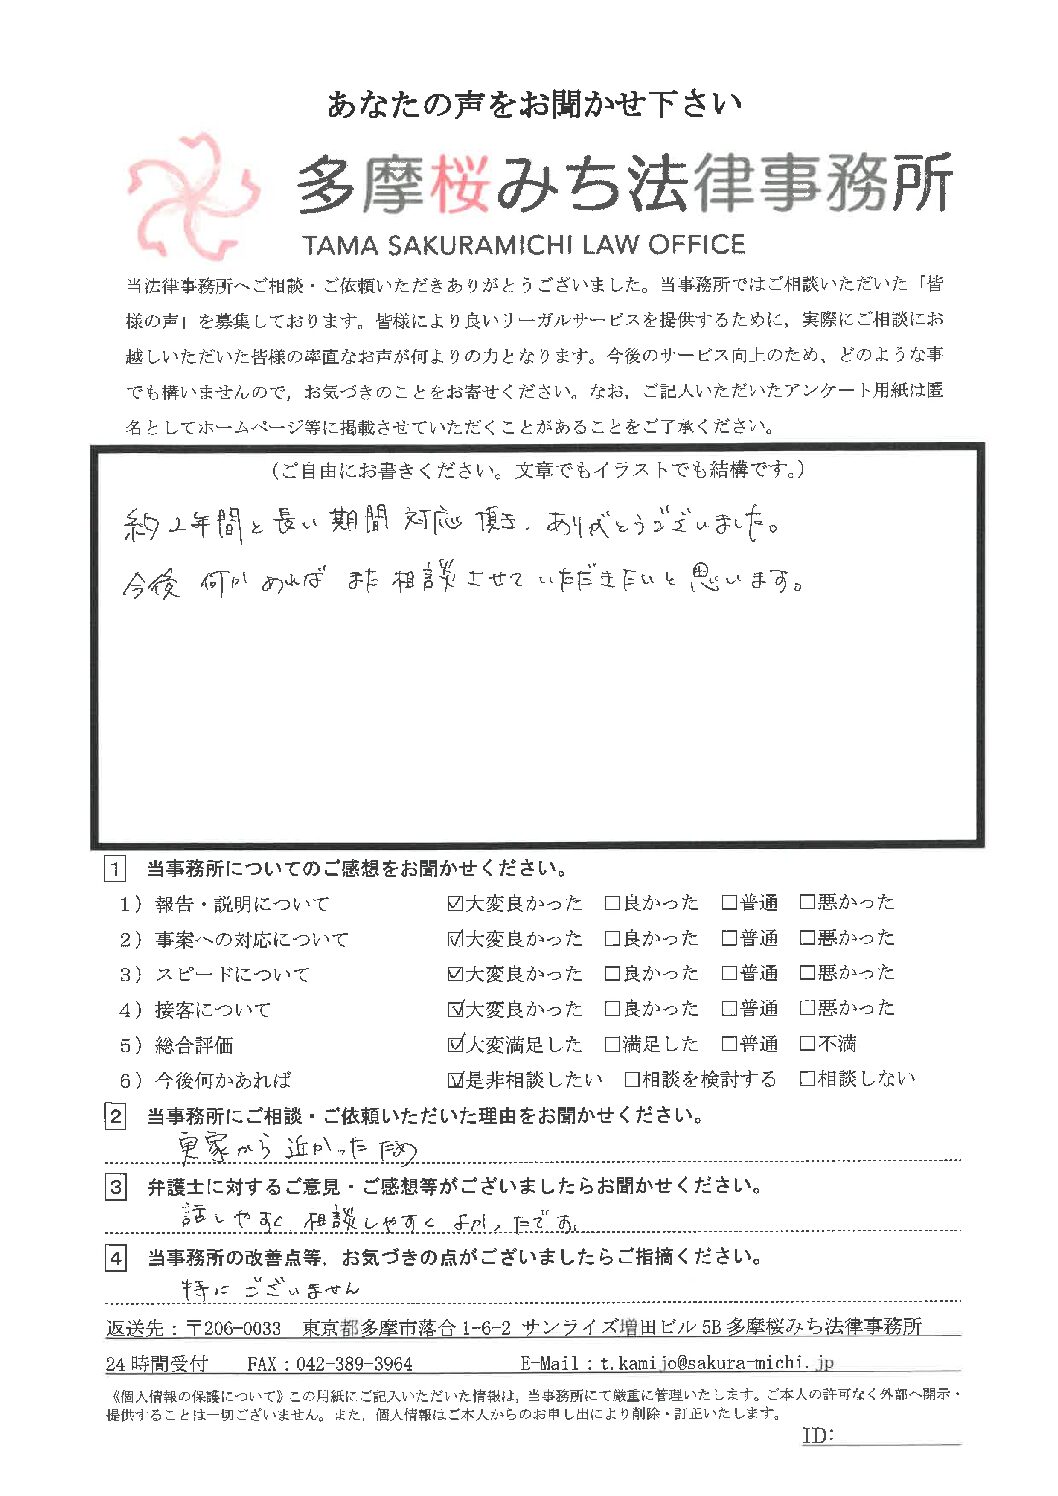 あなたの声をお聞かせ下さい
多摩桜みち法律事務所
TAMA SAKURAMICHI LAW OFFICE
当法律事務所へご相談・ご依頼いただきありがとうございました。当事務所ではご相談いただいた「皆
様の声」を募集しております。皆様により良いリーガルサービスを提供するために，実際にご相談にお
越しいただいた皆様の率直なお声が何よりの力となります。今後のサービス向上のため、どのような事
でも構いませんので，お気づきのことをお寄せください。なお，ご記入いただいたアンケート用紙は匿
名としてホームページ等に掲載させていただくことがあることをご了承ください。
（ご自由にお書きください。文章でもイラストでも結構です。）
約2年間と長い期間 対応頂き、ありがとうございました。
今後 何か あれば また 相談させていただきたいと思います。
1 当事務所についてのご感想をお聞かせください。
1）報告・説明について ☑大変良かった □良かった □普通 □悪かった
2）事案への対応について ☑大変良かった □良かった □普通 □悪かった
3）スピードについて ☑大変良かった □良かった □普通 □悪かった
4）接客について ☑大変良かった □良かった □普通 □悪かった
5）総合評価 ☑大変満足した □満足した □普通 □不満
6）今後何かあれば ☑是非相談したい □相談を検討する □相談しない
2 当事務所にご相談・ご依頼いただいた理由をお聞かせください。
実家から近かったため
3 弁護士に対するご意見・ご感想等がございましたらお聞かせください。
話しやすく、相談しやすくよかったです。
4 当事務所の改善点等，お気づきの点がございましたらご指摘ください。
特にございません
返送先：〒206-0033 東京都多摩市落合1-6-2 サンライズ増田ビル5B多摩桜みち法律事務所
24時間受付 FAX：042-389-3964 E-Mail：t.kamijo@sakura-michi.jp
《個人情報の保護について》この用紙にご記入いただいた情報は，当事務所にて厳重に管理いたします。ご本人の許可なく外部へ開示・
提供することは一切ございません。また，個人情報はご本人からのお申し出により削除・訂正いたします。
ID: